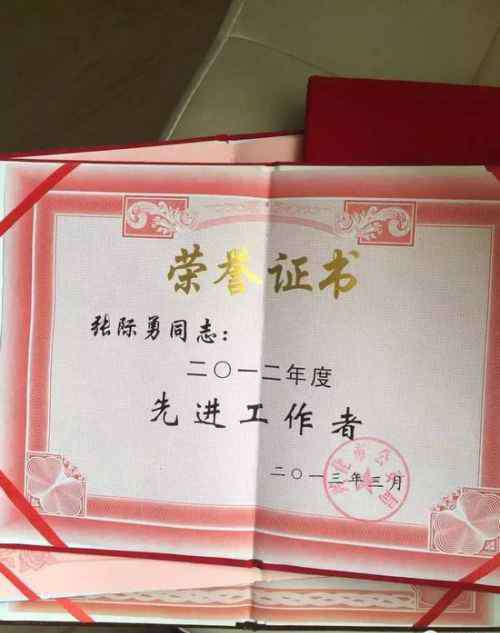 荣誉证书
张际勇同志：
二〇一二年度
先进工作者
二〇一三年三月